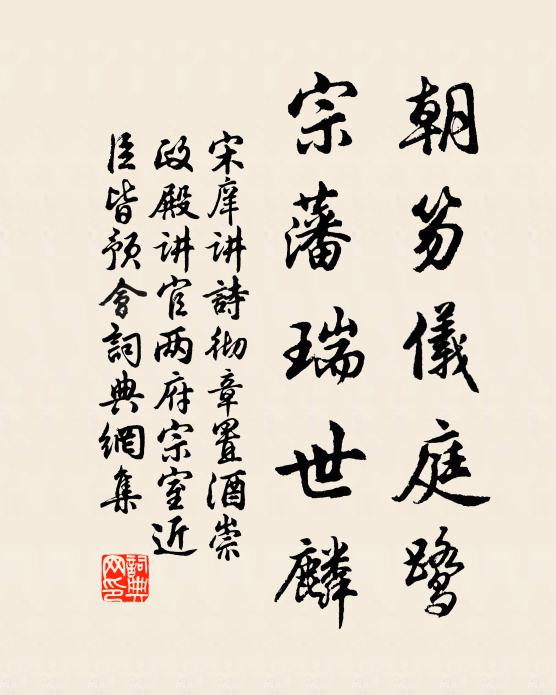 朝笏儀庭鹭
宗藩瑞世麟
宋庠讲詩彻章置酒崇
政殿讲官两府宗室近
臣皆预會詞典網集
詞典網印